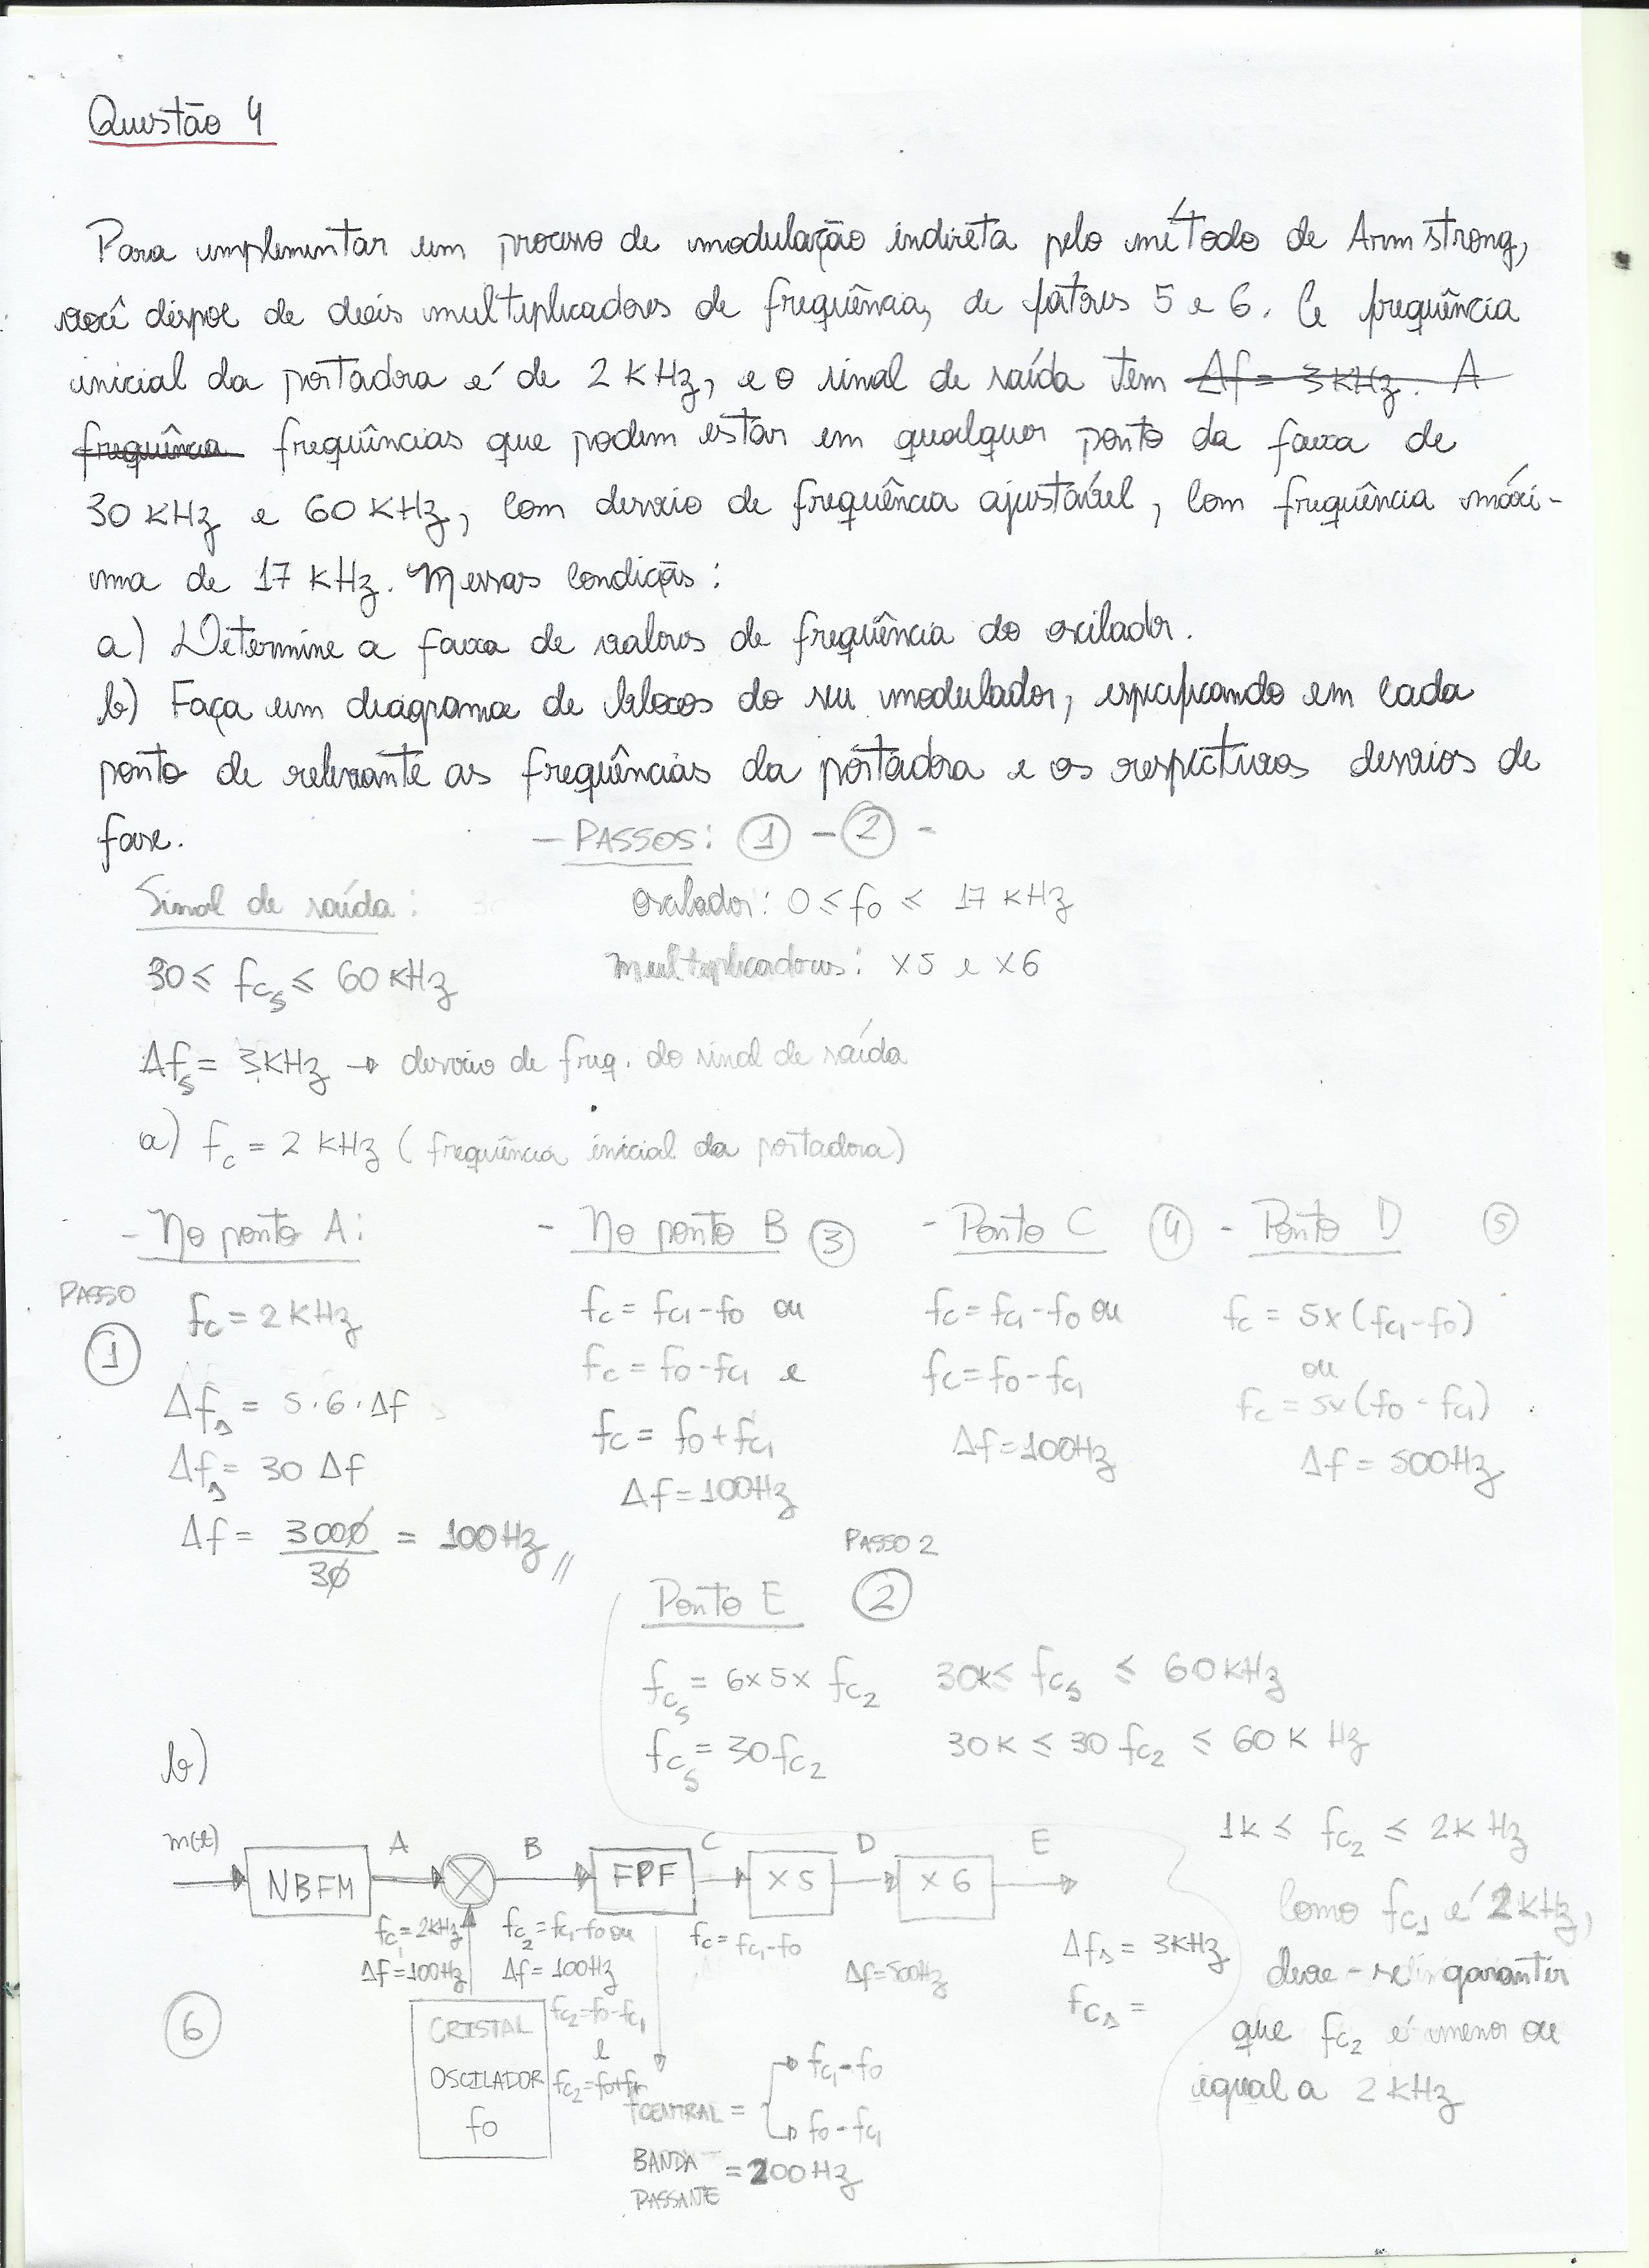 Questão 4
Para implementar um processo de modulação indireta pelo método de Armstrong,
você dispoe de dois multiplicadores de frequência, de fatores 5 e 6. A frequência
inicial da portadora é de 2 KHz, e o sinal de saída tem Δf = 3KHz. A
frequência frequências que podem estar em qualquer ponto da faixa de
30 KHz e 60 KHz, com desvio de frequência ajustável, com frequência máxi-
ma de 17 KHz. Nessas condições:
a) Determine a faixa de valores de frequência do oscilador.
b) Faça um diagrama de blocos do seu modulador, especificando em cada
ponto de relevante as frequências da portadora e os respectivos desvios de
fase.
- PASSOS: 1 - 2 -
Sinal de saída:
Oscilador: 0 ≤ f0 ≤ 17 KHz
30 ≤ fcs ≤ 60 KHz
Multiplicadores: x5 e x6
Δfs = 3KHz → desvio de freq. do sinal de saída
a) fc = 2 KHz (frequência inicial da portadora)
- No ponto A:
PASSO
1
fc = 2 KHz
Δfs = 5.6.Δf
Δfs = 30 Δf
Δf = 3000/30 = 100Hz //
- No ponto B 3
fc = fc1 - f0 ou
fc = f0 - fc1 e
fc = f0 + fc1
Δf = 100Hz
- Ponto C 4
fc = fc1 - f0 ou
fc = f0 - fc1
Δf = 100Hz
- Ponto D 5
fc = 5x(fc1 - f0)
ou
fc = 5x(f0 - fc1)
Δf = 500Hz
PASSO 2
Ponto E 2
fcs = 6x5x fc2 30k ≤ fcs ≤ 60KHz
fcs = 30fc2 30K ≤ 30fc2 ≤ 60K Hz
1k ≤ fc2 ≤ 2K Hz
como fc1 é 2KHz,
deve-se garantir
que fc2 é menor ou
igual a 2KHz
b)
m(t) A B C D E
NBFM X FPF x5 x6
fc1 = 2KHz
Δf = 100Hz
fc2 = fc1 - f0 ou
Δf = 100Hz
fc2 = f0 - fc1
e
fc2 = f0 + fc1
fc = fc1 - f0
Δf = 500Hz
Δfs = 3KHz
fcs =
6
CRISTAL
OSCILADOR
f0
fCENTRAL = fc1 - f0
f0 - fc1
BANDA
PASSANTE = 200Hz